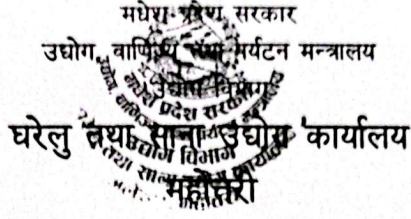 मधेश प्रदेश सरकार
उद्योग, वाणिज्य तथा पर्यटन मन्त्रालय
उद्योग विभाग
घरेलु तथा साना उद्योग कार्यालय
महोत्तरी